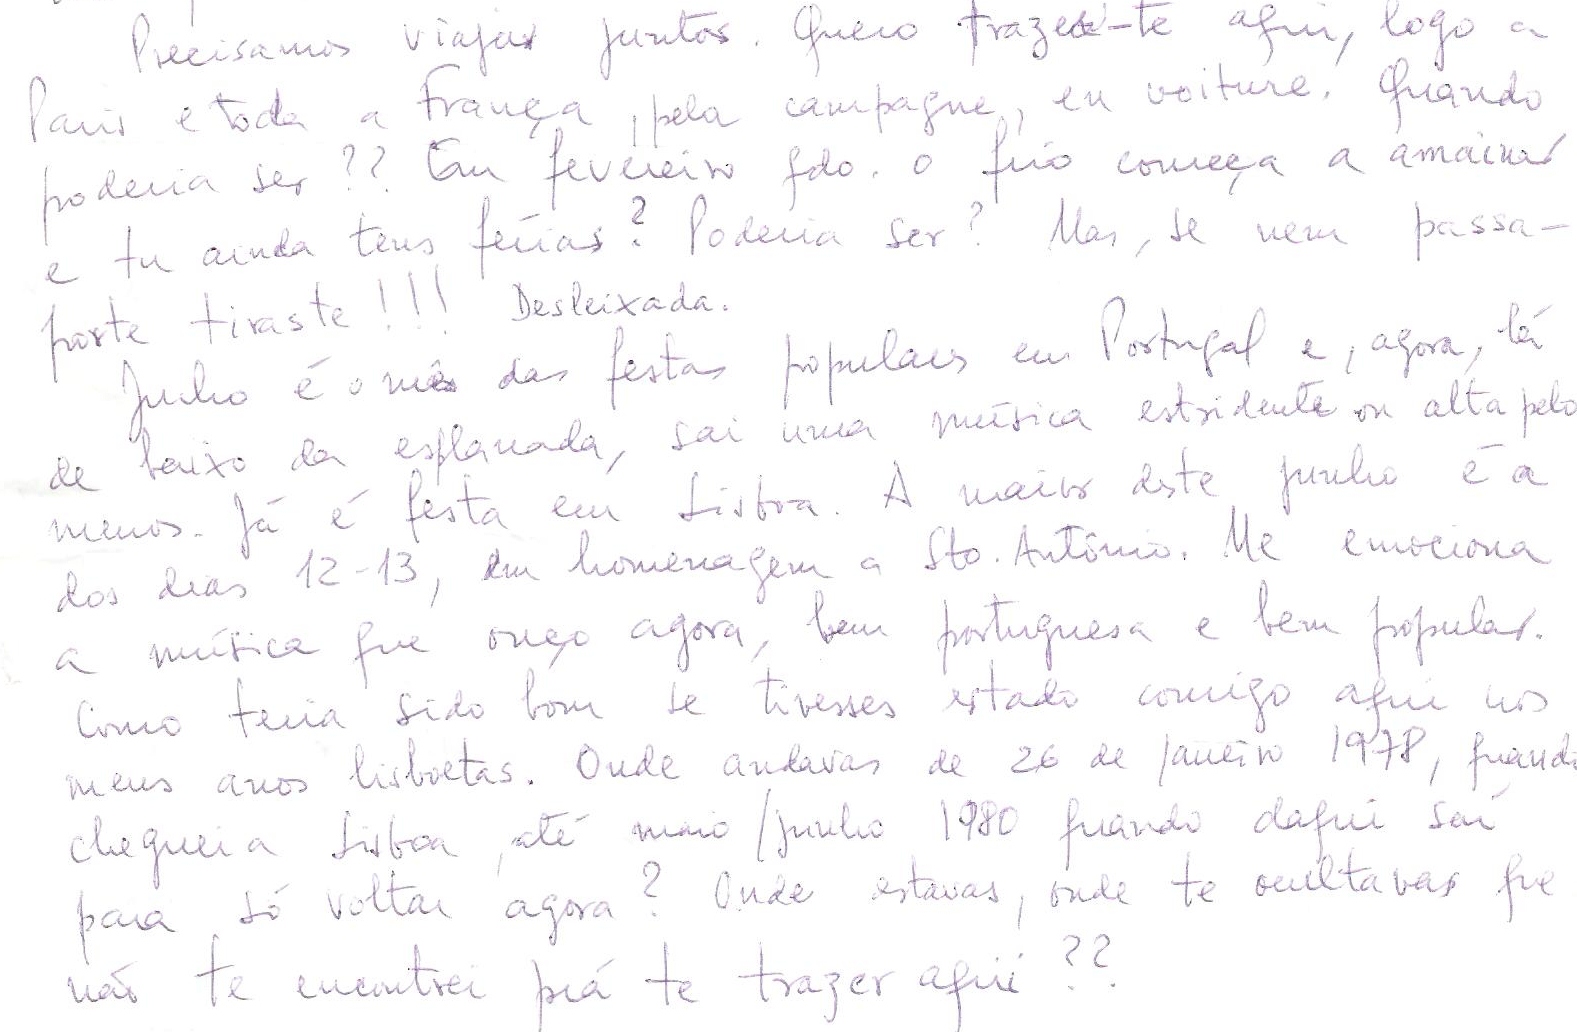 Precisamos viajar juntos. Quero trazer-te aqui, logo a
Paris e toda a França, pela campagne, en voiture. Quando
poderia ser?? Em fevereiro qdo. o frio começa a amainar
e tu ainda tens férias? Poderia ser? Mas, se nem passa-
porte tiraste!!! Desleixada.
Junho é o mês das festas populares em Portugal e, agora, lá
de baixo da esplanada, sai uma música estridente ou alta pelo
menos. Já é festa em Lisboa. A maior deste junho é a
dos dias 12-13, em homenagem a Sto. Antônio. Me emociona
a música que ouço agora, bem portuguesa e bem popular.
Como teria sido bom se tivesses estado comigo aqui nos
meus anos lisboetas. Onde andavas de 26 de janeiro 1978, quando
cheguei a Lisboa, até maio/junho 1980 quando daqui saí
para só voltar agora? Onde estavas, onde te ocultavas que
não te encontrei prá te trazer aqui??